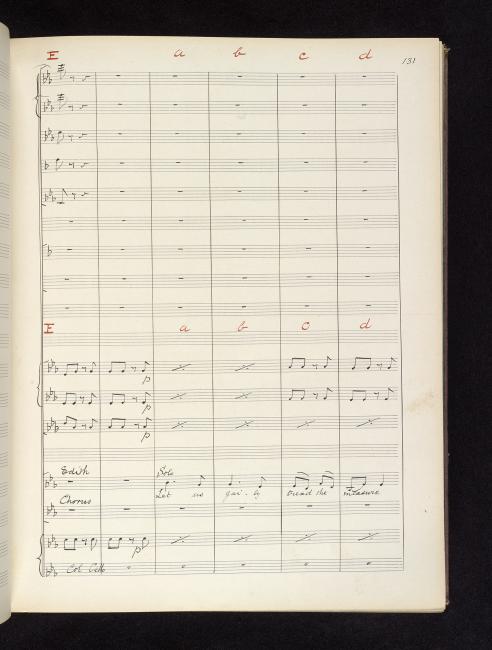 E a b c d
131
E a b c d
p
p
p
Edith Solo
Let us gai-ly tread the measure
Chorus
p
Col Cello